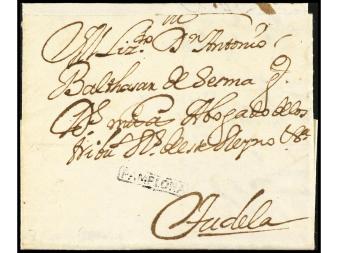 Al Liz.do D.n Antonio
Balthasar de Serma
Abogado de los
de este Reyno &a
PAMPLONA
Tudela